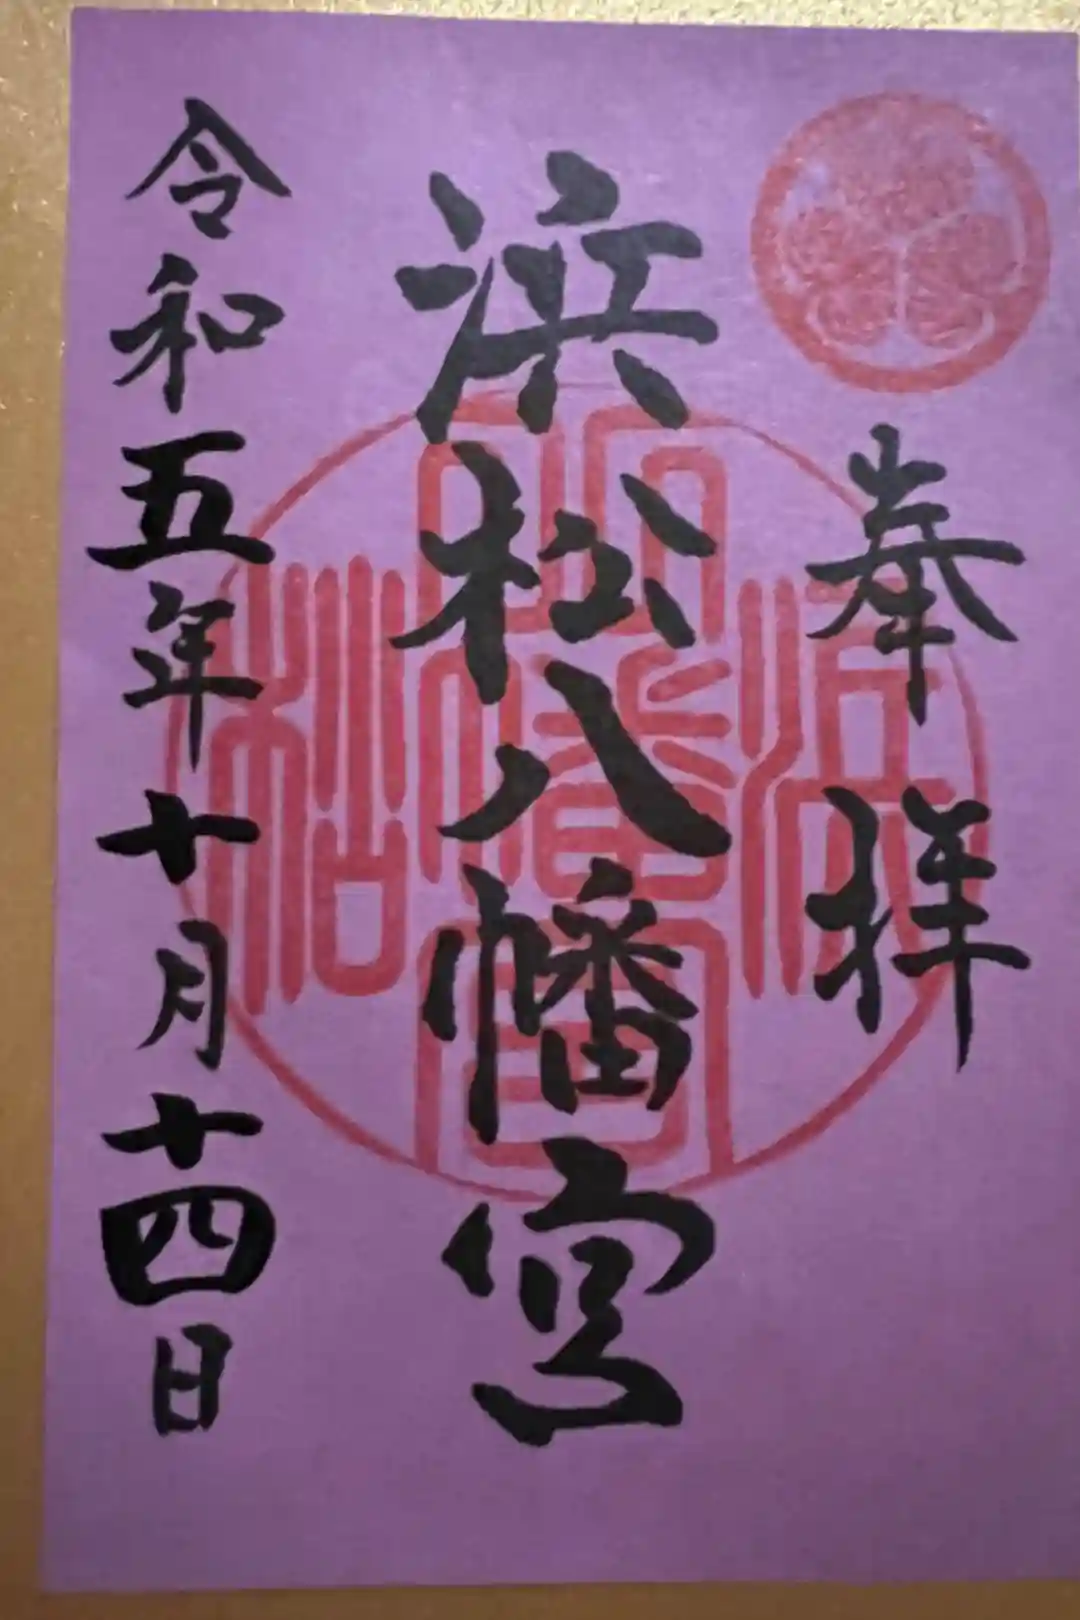 奉拝
浜松八幡宮
令和五年十月十四日
浜松八幡宮